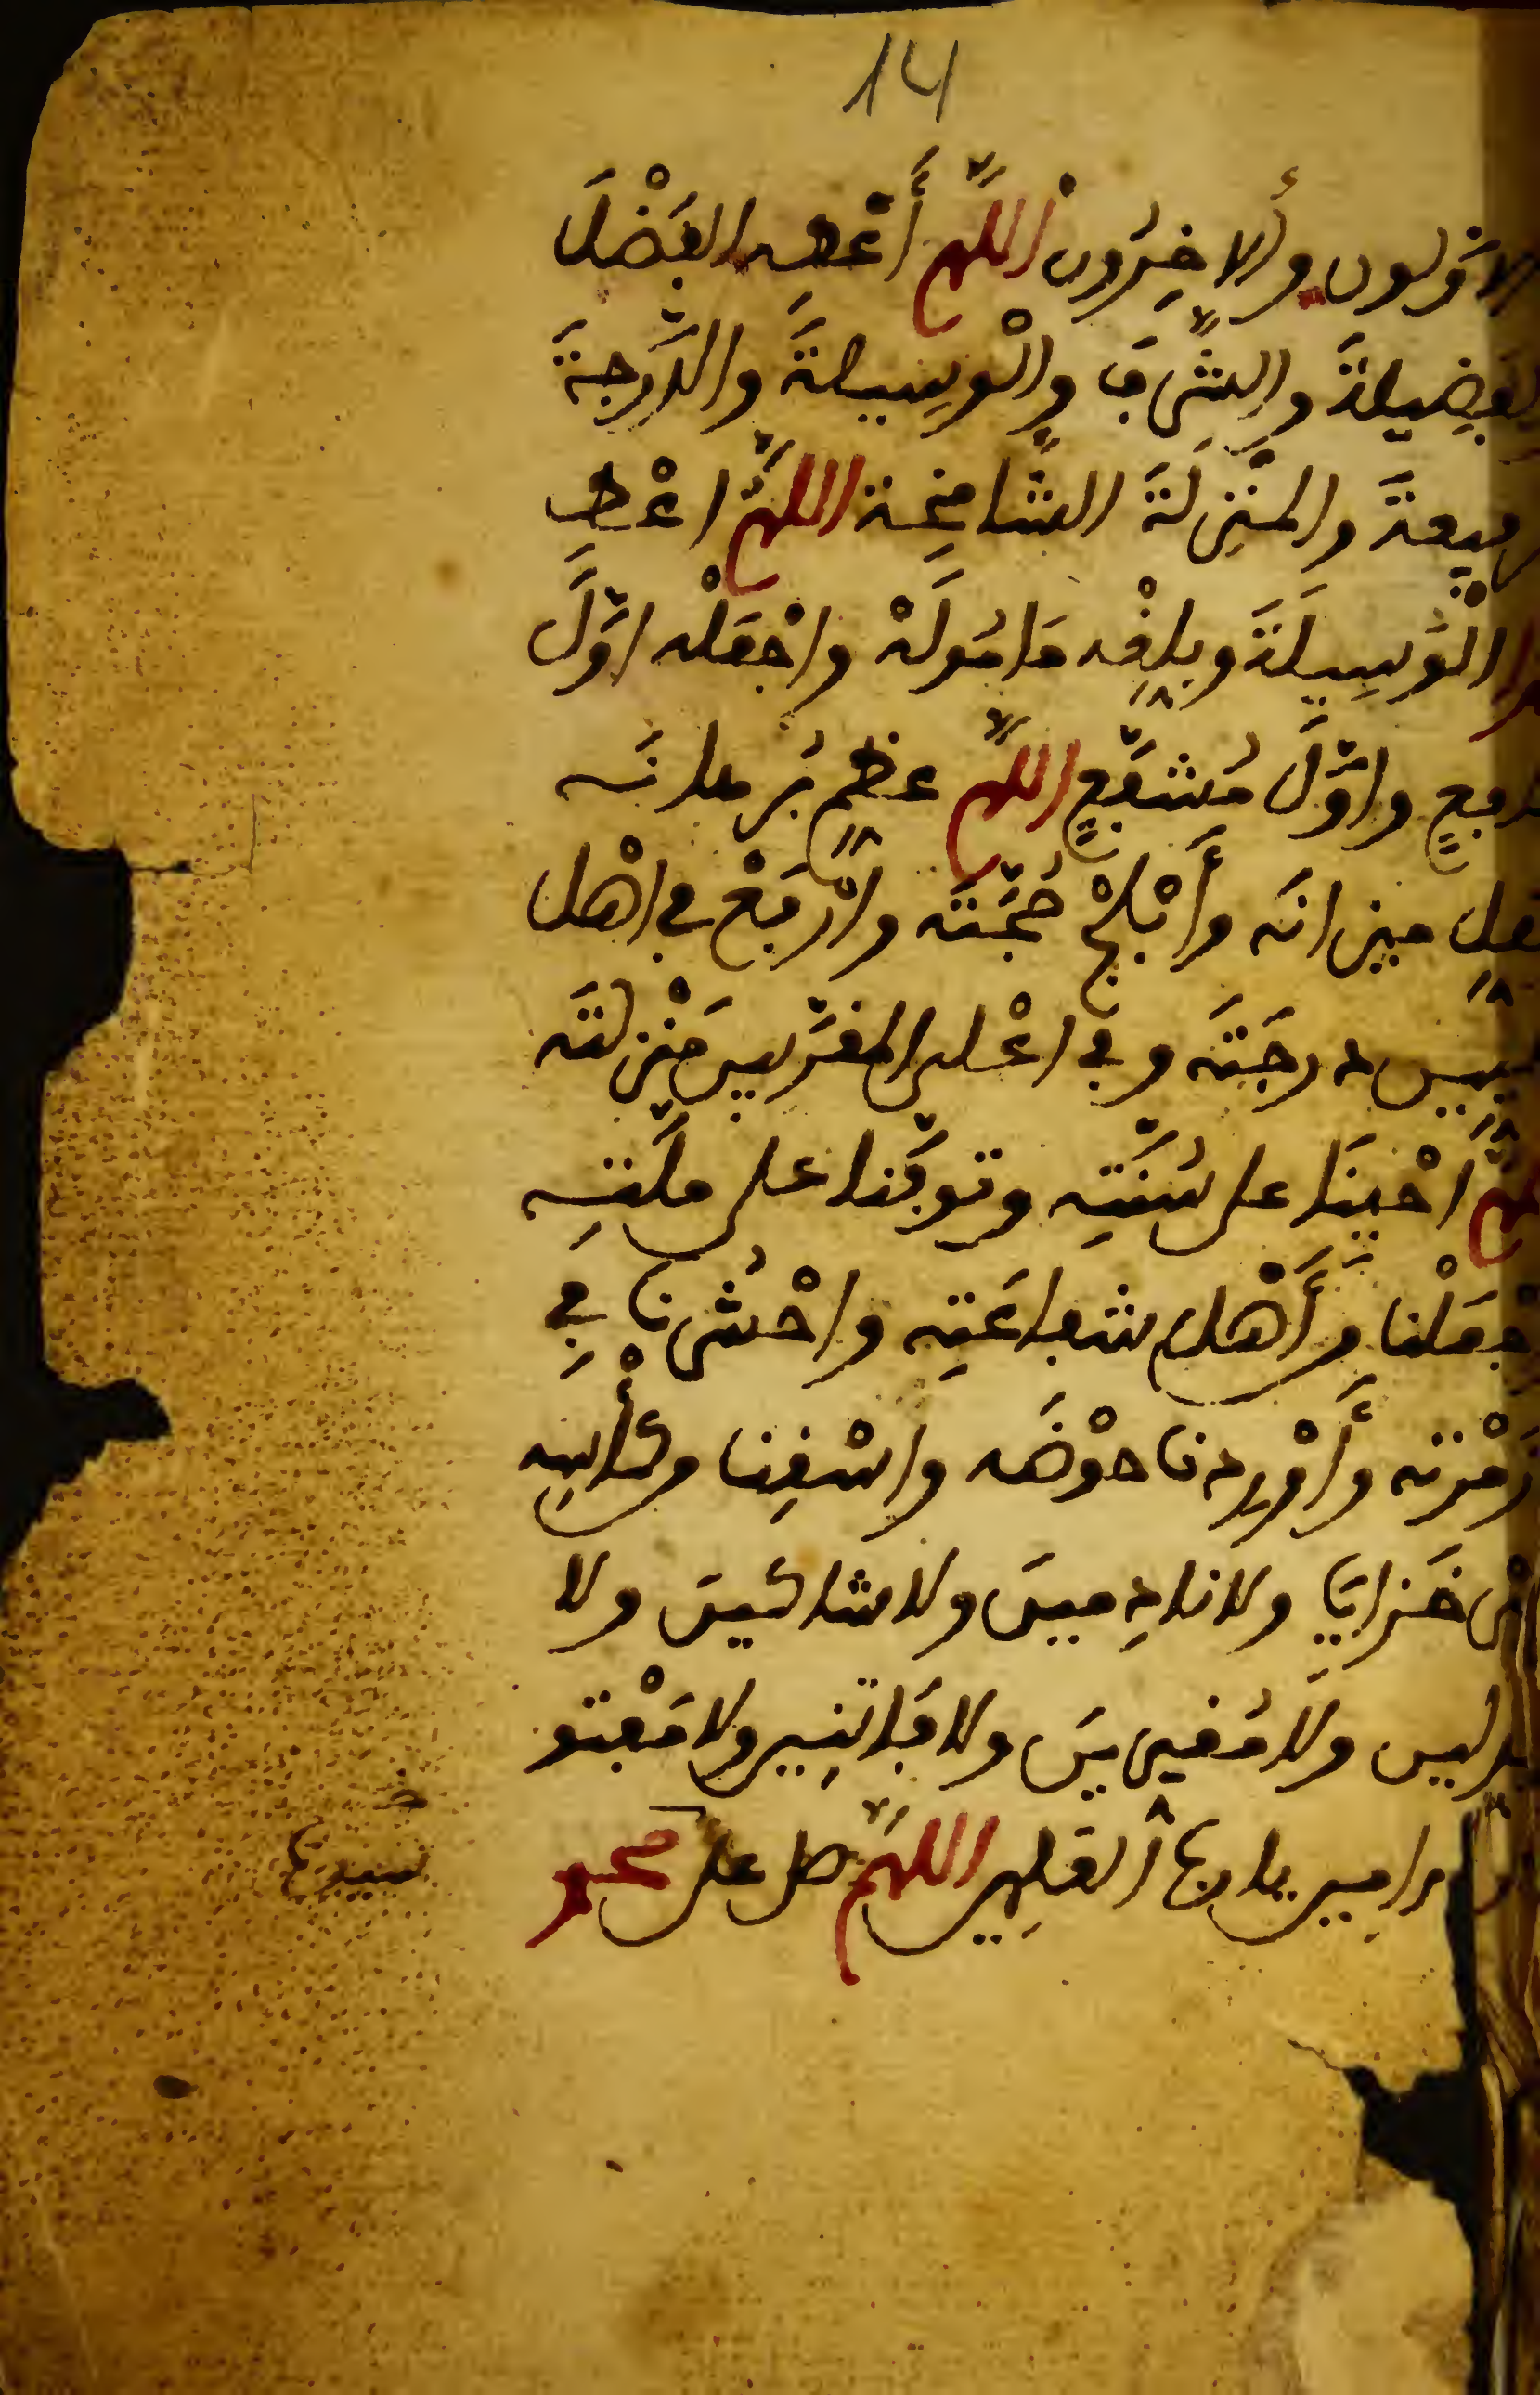 14
الاوّلون والاخِرُون اللهمّ أعْطِه الفَضْلَ
والفضِيلةَ والشّرفَ والْوسِيلةَ والدّرجةَ
الرفيعةَ والمنْزِلةَ الشّامِخة اللهمّ اعْطِ
الْوَسِيلَةَ وبلِّغْه مَامُولَهْ واجْعَلْه اوّلَ
شافعٍ واوّلَ مُشَفّعٍ اللهمّ عظّمْ بُرهانَه
وثقلِ ميزانَه وأَبْلِجْ حُجّتَه وارْفَعْ في اهْل
درجَتَه وفي اعْلى المقرّبين مَنْزلتَه
اللهمّ احْيِنَا على سُنّتِه وتوفّنا على ملّتِه
واجعَلْنا من أَهْل شفاعَتِه واحْشُرنا فِي
زُمْرته وأَوْرِدنا حوْضَه واسْقِنا من كأْسِه
غيْر خَزايَا ولا نادِمينَ ولا شاكينَ ولا
مبدلين ولا مُغيّرينَ ولا فَاتِنِين ولا مَفْتو
نين ءامين يا ربّ العَلمِين اللهمّ صل على محمد
سيدنا